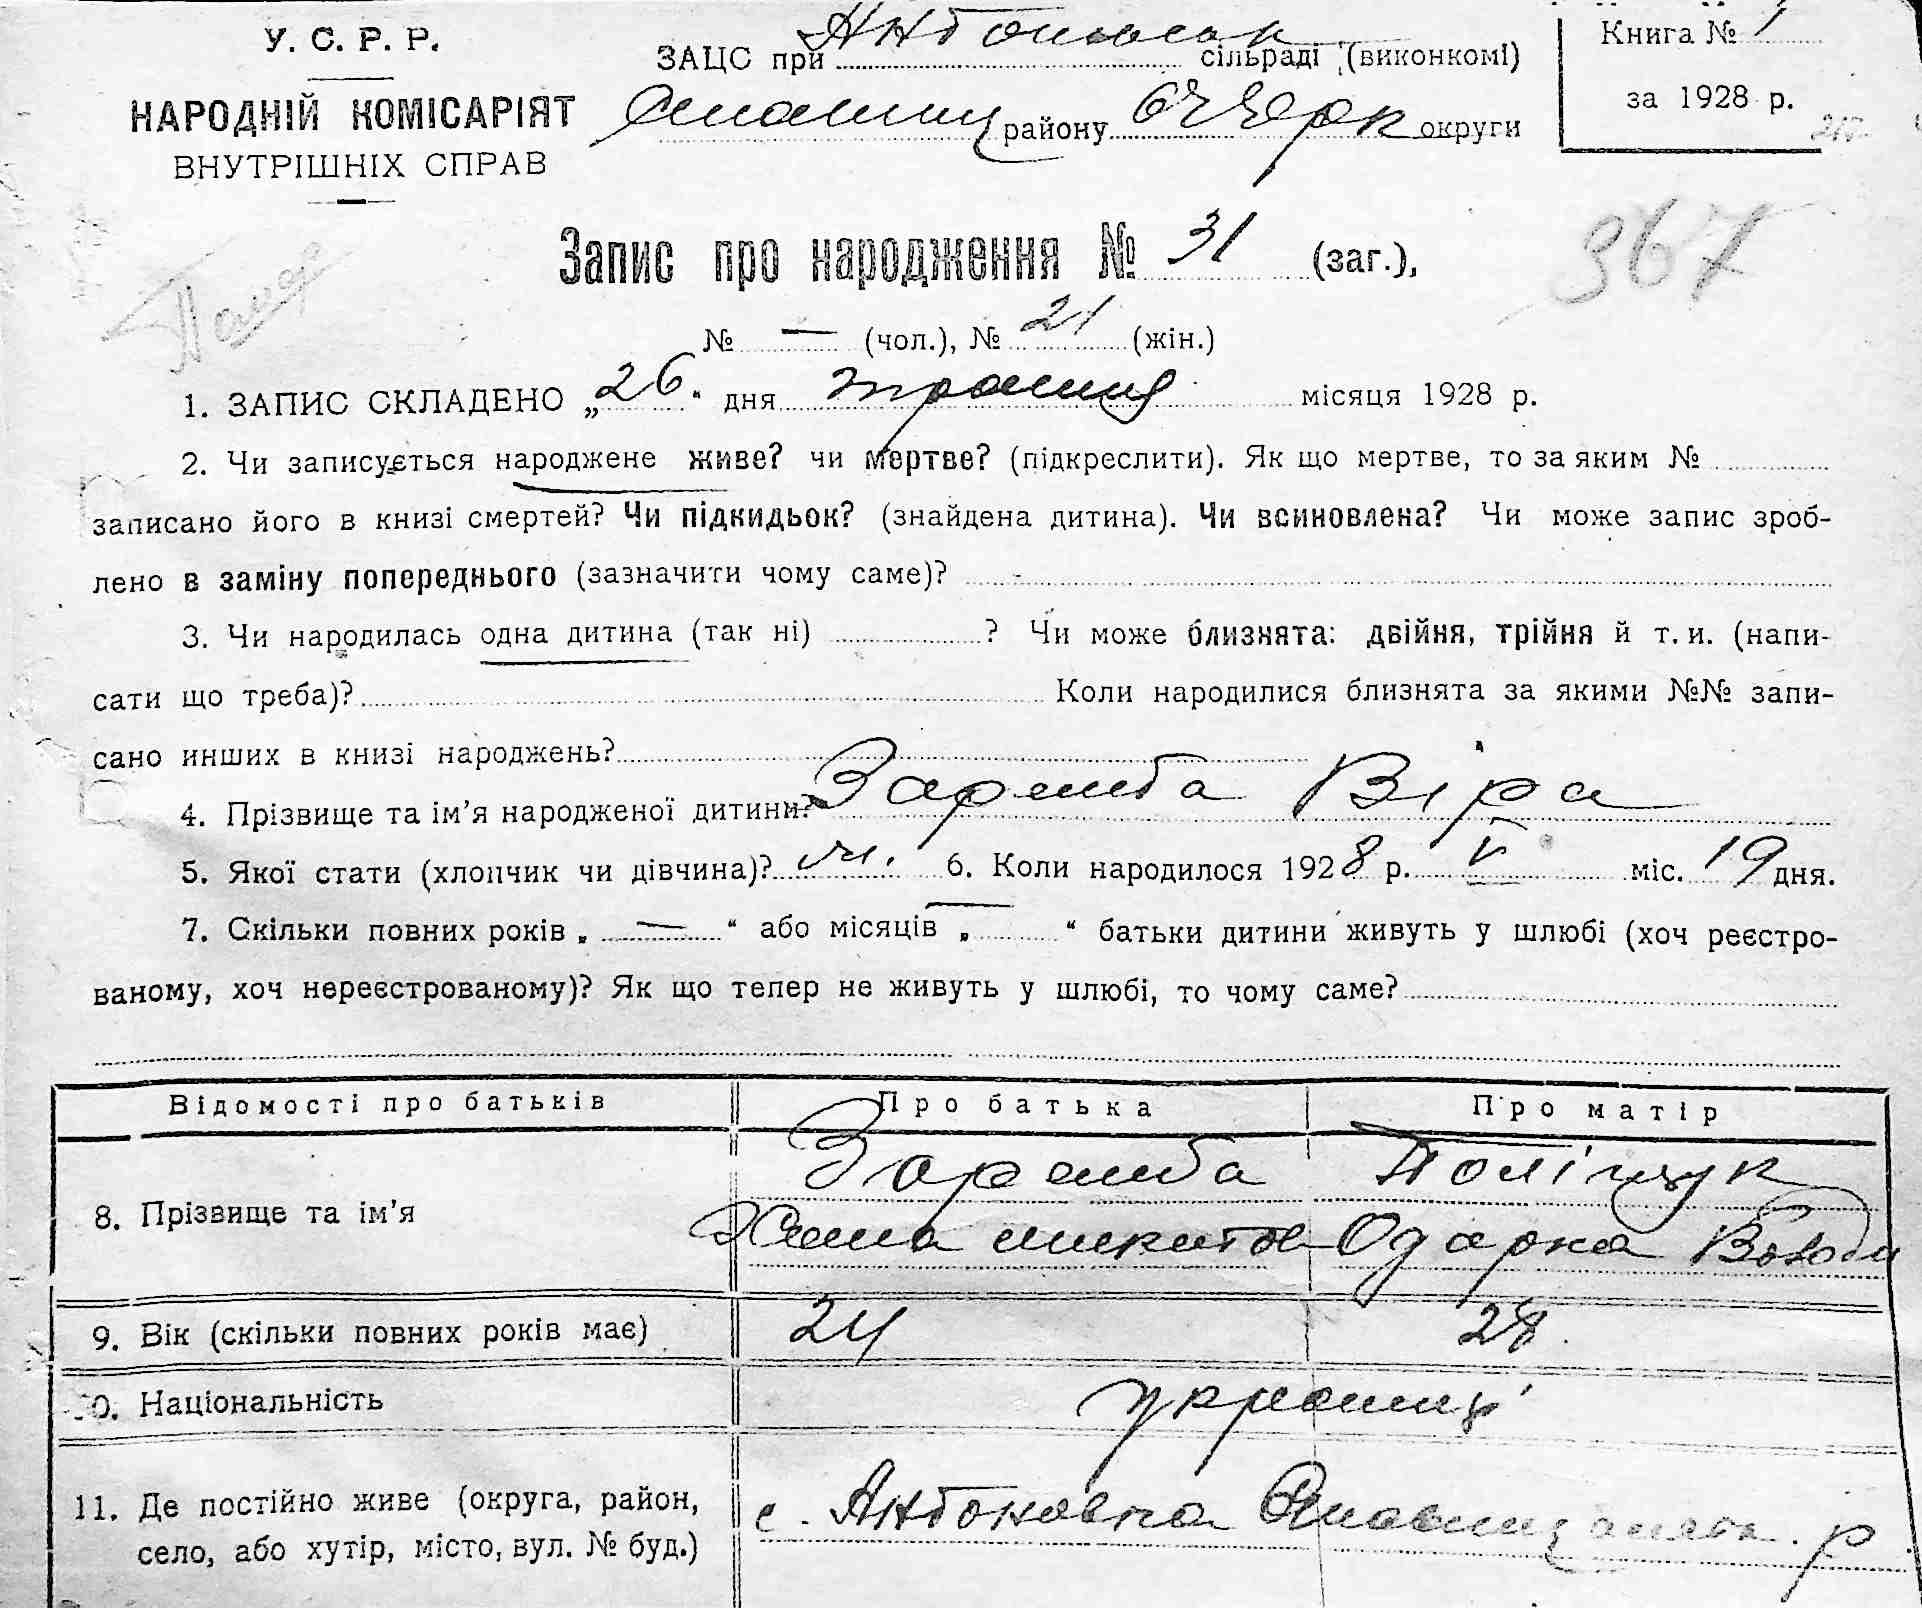 У. С. Р. Р.
НАРОДНІЙ КОМІСАРІЯТ
ВНУТРІШНІХ СПРАВ
ЗАЦС при сільраді (виконкомі)
району округи
Книга № 1
за 1928 р.
367
Запис про народження № 31 (заг.),
№ — (чол.), № 21 (жін.)
1. ЗАПИС СКЛАДЕНО „26" дня травня місяця 1928 р.
2. Чи записується народжене живе? чи мертве? (підкреслити). Як що мертве, то за яким №
записано його в книзі смертей? Чи підкидьок? (знайдена дитина). Чи всиновлена? Чи може запис зроб-
лено в заміну попереднього (зазначити чому саме)?
3. Чи народилась одна дитина (так ні) ? Чи може близнята: двійня, трійня й т. и. (напи-
сати що треба)? Коли народилися близнята за якими №№ запи-
сано инших в книзі народжень?
4. Прізвище та ім'я народженої дитини? Заремба Віра
5. Якої стати (хлопчик чи дівчина)? 6. Коли народилося 1928 р. V міс. 19 дня.
7. Скільки повних років „ — " або місяців „ — " батьки дитини живуть у шлюбі (хоч реєстро-
ваному, хоч нереєстрованому)? Як що тепер не живуть у шлюбі, то чому саме?
Відомості про батьків Про батька Про матір
8. Прізвище та ім'я Заремба Поліщук
Одарка Володи
9. Вік (скільки повних років має) 24 28
10. Національність україниці
11. Де постійно живе (округа, район,
село, або хутір, місто, вул. № буд.)
с. Антоновка р.